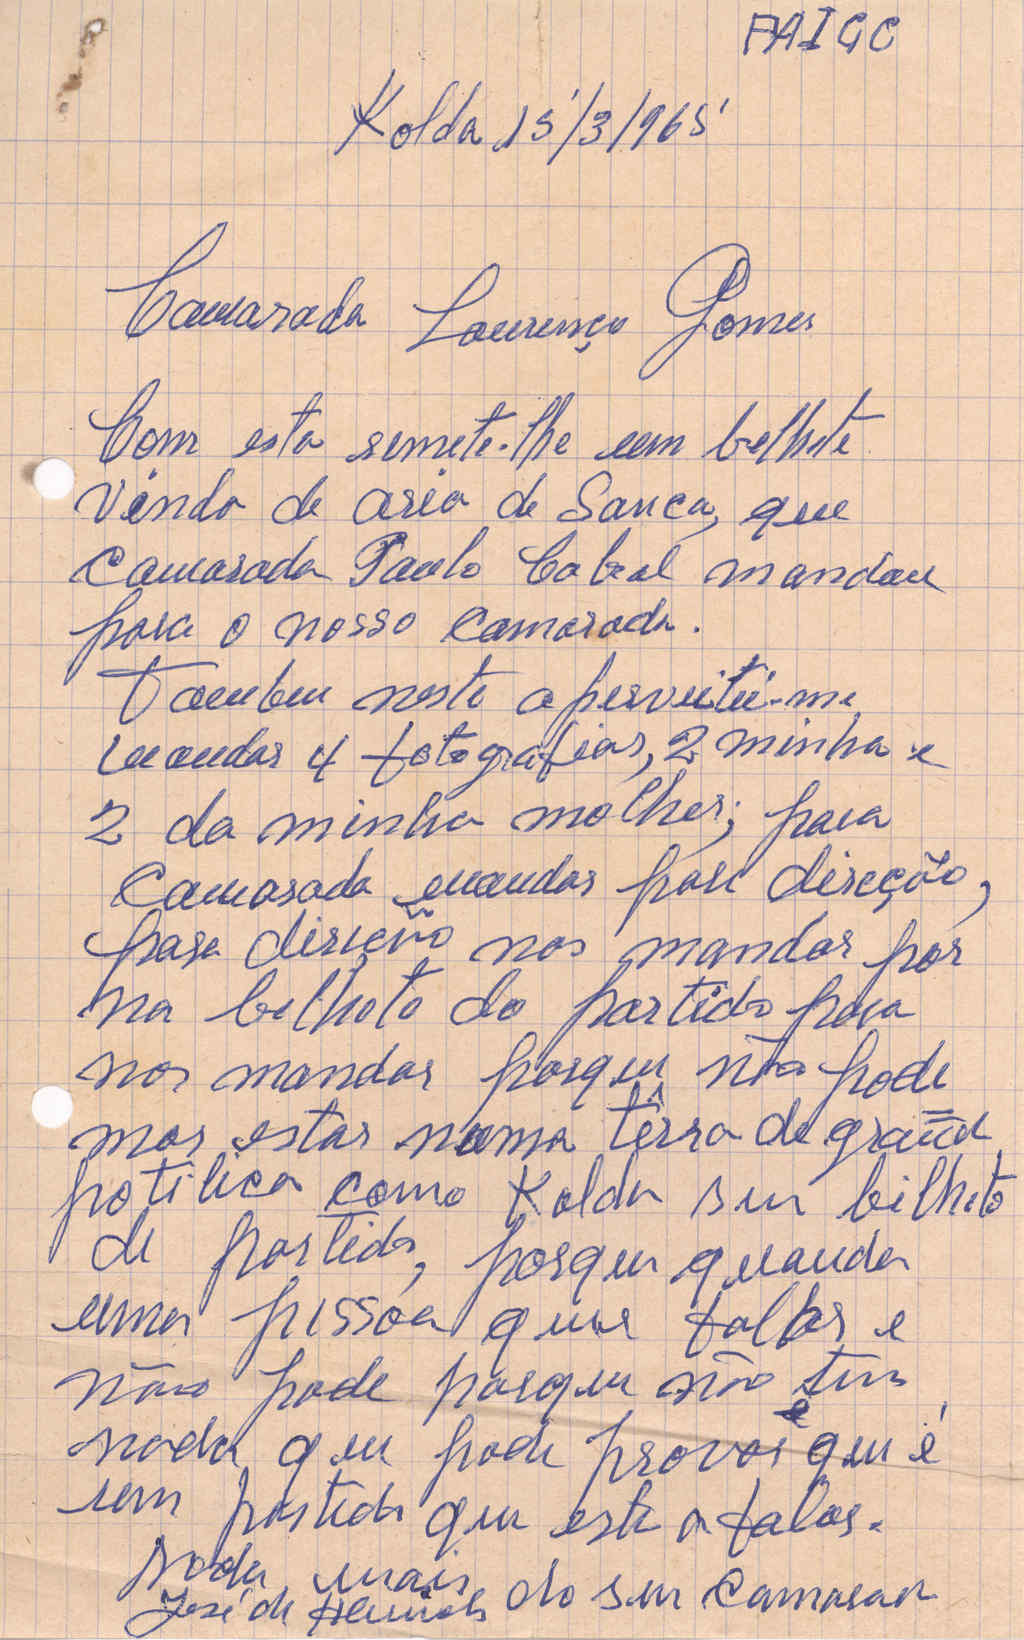 PAIGC
Kolda 15/3/965
Camarada Lourenço Gomes
Com esta remete-lhe um belhete
vindo de aria de Sanca, que
camarada Paulo Cabral mandou
para o nosso camarada.
Tambem neste aperveitei-me
mandar 4 fotografias, 2 minha e
2 da minha molher; para
camarada mandar para direcção,
para direção nos mandar por
na belhete do partido para
nos mandar porque não pode
mos estar numa têrra de grand
potilica como Kolda sem bilhete
de partido, porque quando
uma pissoa quer fallar e
não pode porque não tem
nada que pode provar que é
um partido que está a falar.
Nada mais do seu camarad
José de